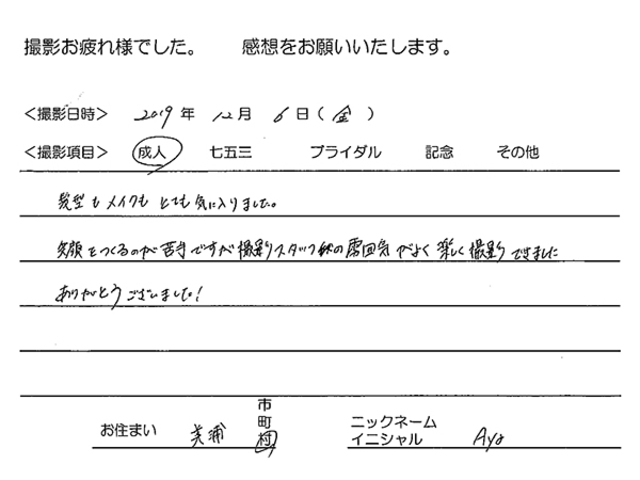 撮影お疲れ様でした。 感想をお願いいたします。
<撮影日時> 2019年 12月 6日(金)
<撮影項目> 成人 七五三 ブライダル 記念 その他
髪型もメイクもとても気に入りました。
笑顔をつくるのが苦手ですが撮影スタッフ様の雰囲気がよく楽しく撮影できました
ありがとうございました!
お住まい 美浦 市町村
ニックネーム
イニシャル Aya